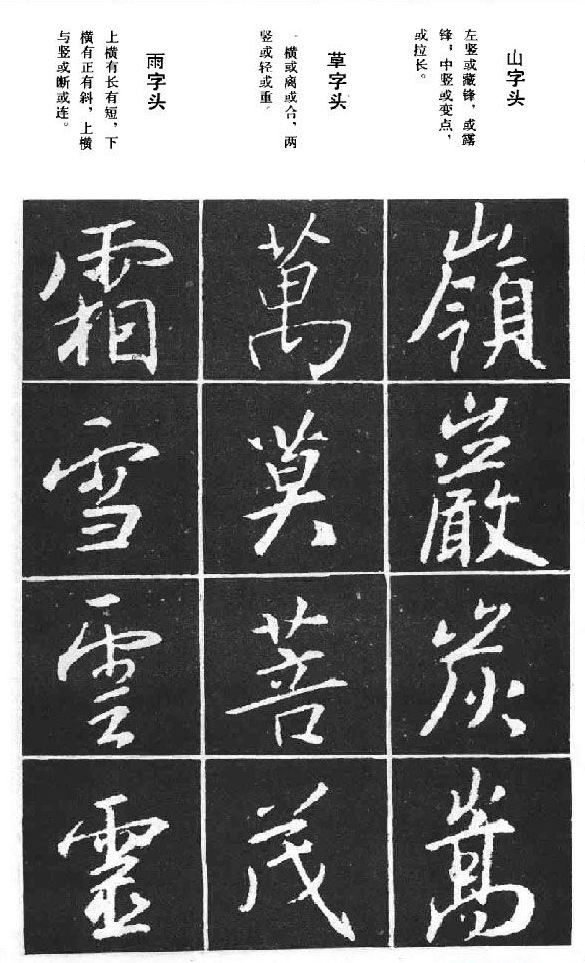 山字头
左竖或藏锋，或露
锋，中竖或变点，
或拉长。
嶺
巖
炭
嵩
草字头
横或离或合，两
竖或轻或重
萬
莫
菩
茂
雨字头
上横有长有短，下
横有正有斜，上横
与竖或断或连。
霜
雪
雲
靈